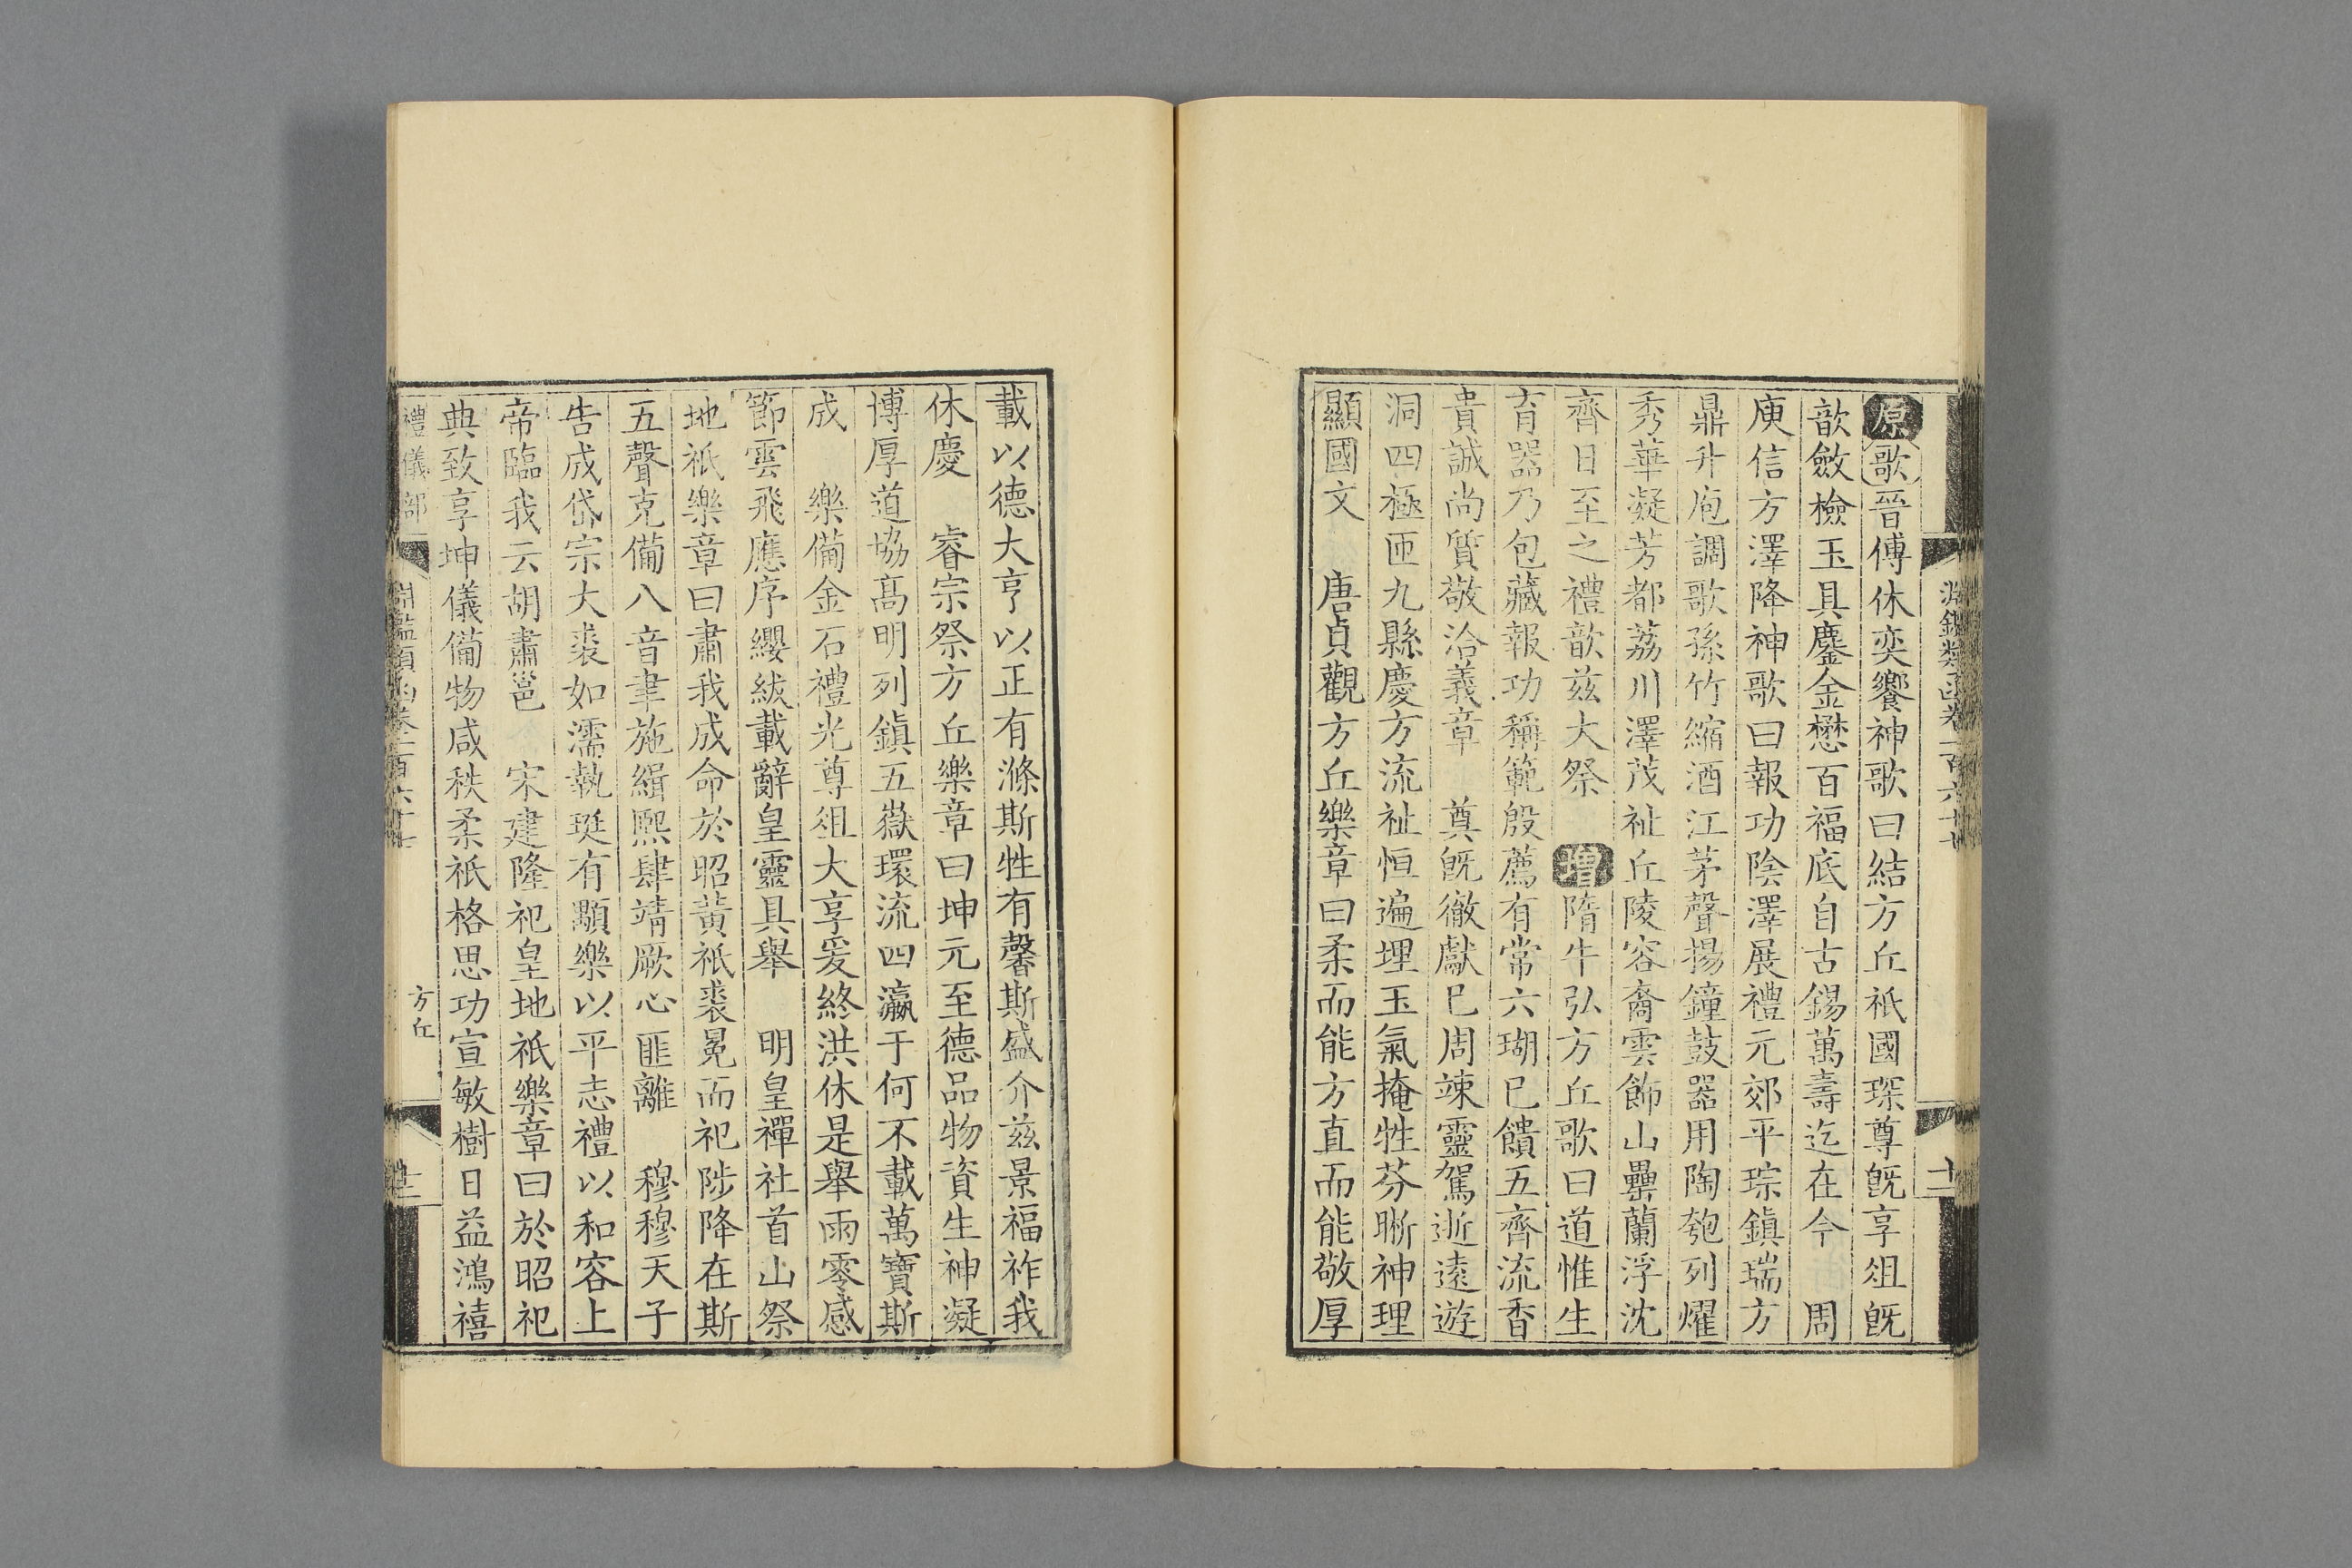 淵鑑類函卷一百六十七
十二
原歌晉傅休奕饗神歌曰結方丘祇國琛尊旣享俎旣
歆斂檢玉具鏖金懋百福底自古錫萬壽迄在今　周
庾信方澤降神歌曰報功陰澤展禮元郊平琮鎮瑞方
鼎升庖調歌孫竹縮酒江茅聲揚鐘鼓器用陶匏列燿
秀華凝芳都荔川澤茂祉丘陵容裔雲飾山罍蘭浮沈
齊日至之禮歆茲大祭　增隋牛弘方丘歌曰道惟生
育器乃包藏報功稱範殷薦有常六瑚已饋五齊流香
貴誠尚質敬洽義章　奠旣徹獻已周竦靈駕逝遠遊
洞四極匝九縣慶方流祉恒遍埋玉氣掩牲芬晰神理
顯國文　唐貞觀方丘樂章曰柔而能方直而能敬厚
載以德大亨以正有滌斯牲有馨斯盛介茲景福祚我
休慶　睿宗祭方丘樂章曰坤元至德品物資生神凝
博厚道協髙明列鎮五嶽環流四瀛于何不載萬寶斯
成　樂備金石禮光尊俎大享爰終洪休是舉雨零感
節雲飛應序纓紱載辭皇靈具舉　明皇禪社首山祭
地祇樂章曰肅我成命於昭黃祇裘冕而祀陟降在斯
五聲克備八音聿施緝熙肆靖厥心匪離　穆穆天子
告成岱宗大裘如濡執珽有顒樂以平志禮以和容上
帝臨我云胡肅邕　宋建隆祀皇地祇樂章曰於昭祀
典致享坤儀備物咸秩柔祇格思功宣敏樹日益鴻禧
禮儀部
淵鑑類函卷一百六十七
方丘